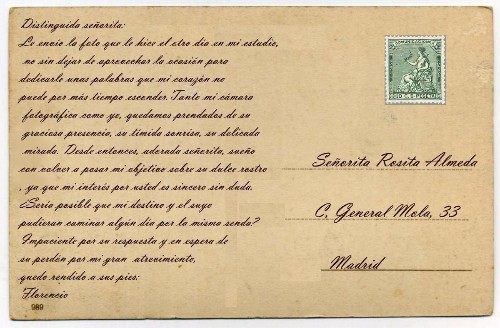 Distinguida señorita:
Le envío la foto que le hice el otro día en mi estudio,
no sin dejar de aprovechar la ocasión para
dedicarle unas palabras que mi corazón no
puede por más tiempo esconder. Tanto mi cámara
fotográfica como yo, quedamos prendados de su
graciosa presencia, su tímida sonrisa, su delicada
mirada. Desde entonces, adorada señorita, sueño
con volver a posar mi objetivo sobre su dulce rostro
, ya que mi interés por usted es sincero sin duda.
¿Sería posible que mi destino y el suyo
pudieran caminar algún día por la misma senda?
Impaciente por su respuesta y en espera de
su perdón por mi gran atrevimiento,
quedo rendido a sus pies:
Florencio
989
COMUNICACIONES
10 C. S PESETA
Señorita Rosita Almeda
C. General Mola, 33
Madrid